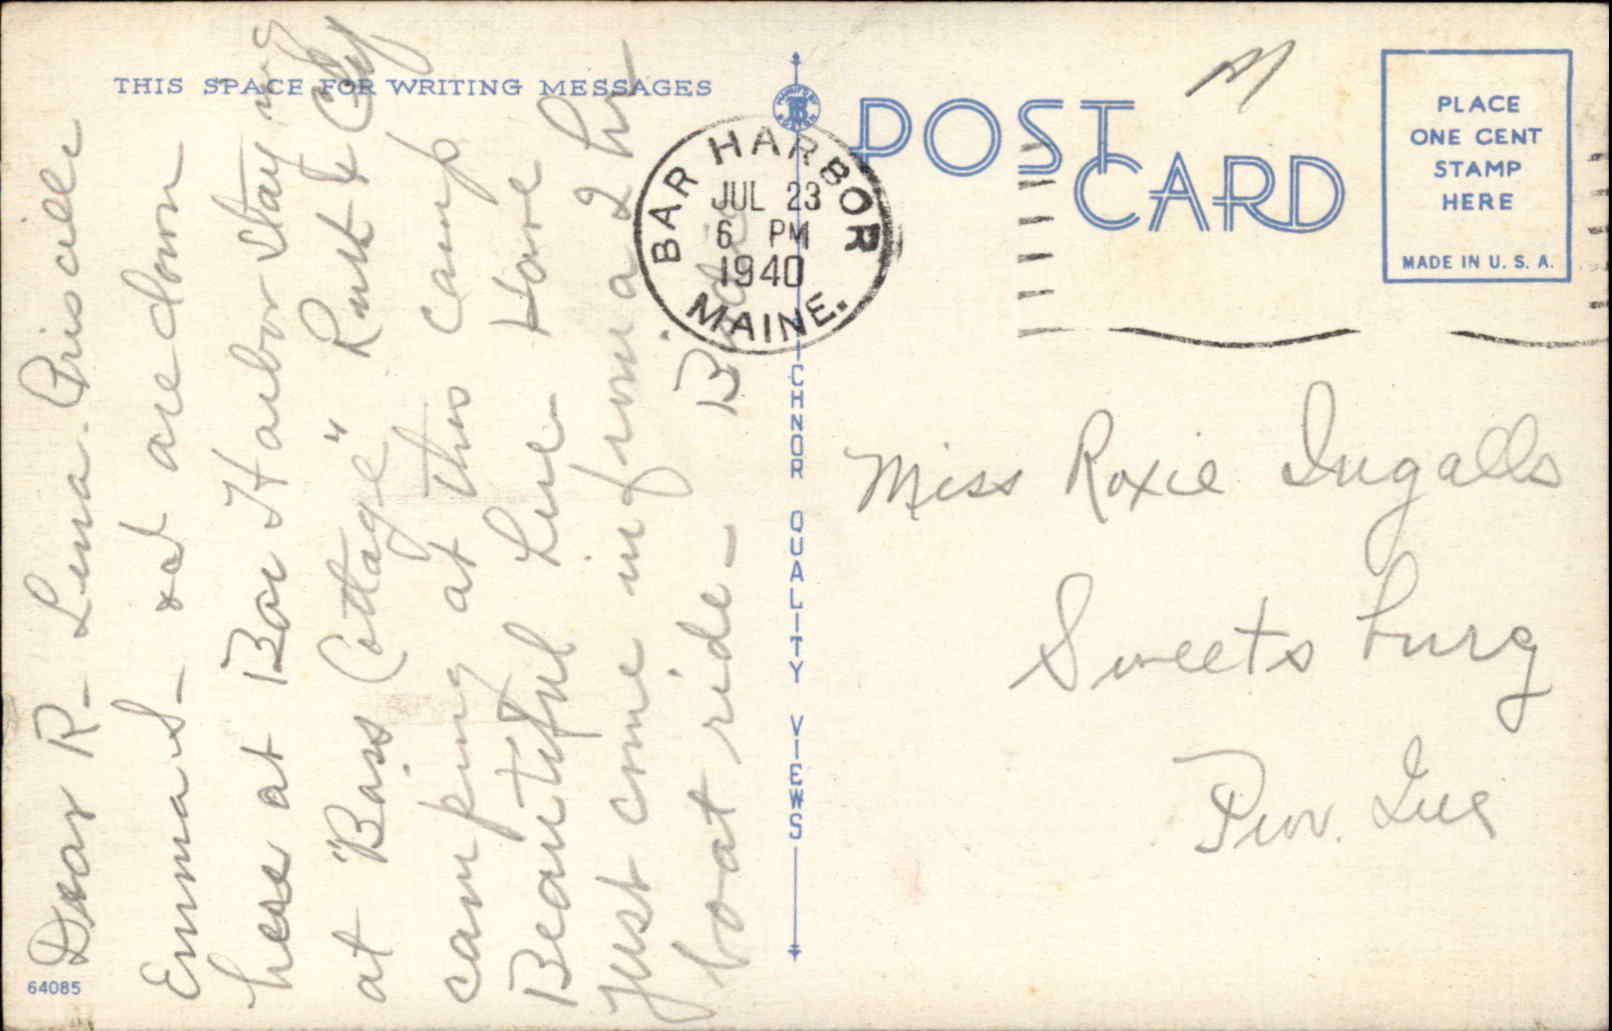 THIS SPACE FOR WRITING MESSAGES
Dear R- Lena. Priscille
Emma S- and are down
here at Bar Harbor Stay ing
at "Bass Cottage" Ruth &
camping at this camp
Beautiful Line Have
just come in from a 2 hr
boat ride -
64085
BAR HARBOR
JUL 23
6 PM
1940
MAINE.
TICHNOR QUALITY VIEWS
POST
CARD
PLACE
ONE CENT
STAMP
HERE
MADE IN U. S. A.
Miss Roxie Ingalls
Sweetsburg
Prov. Que